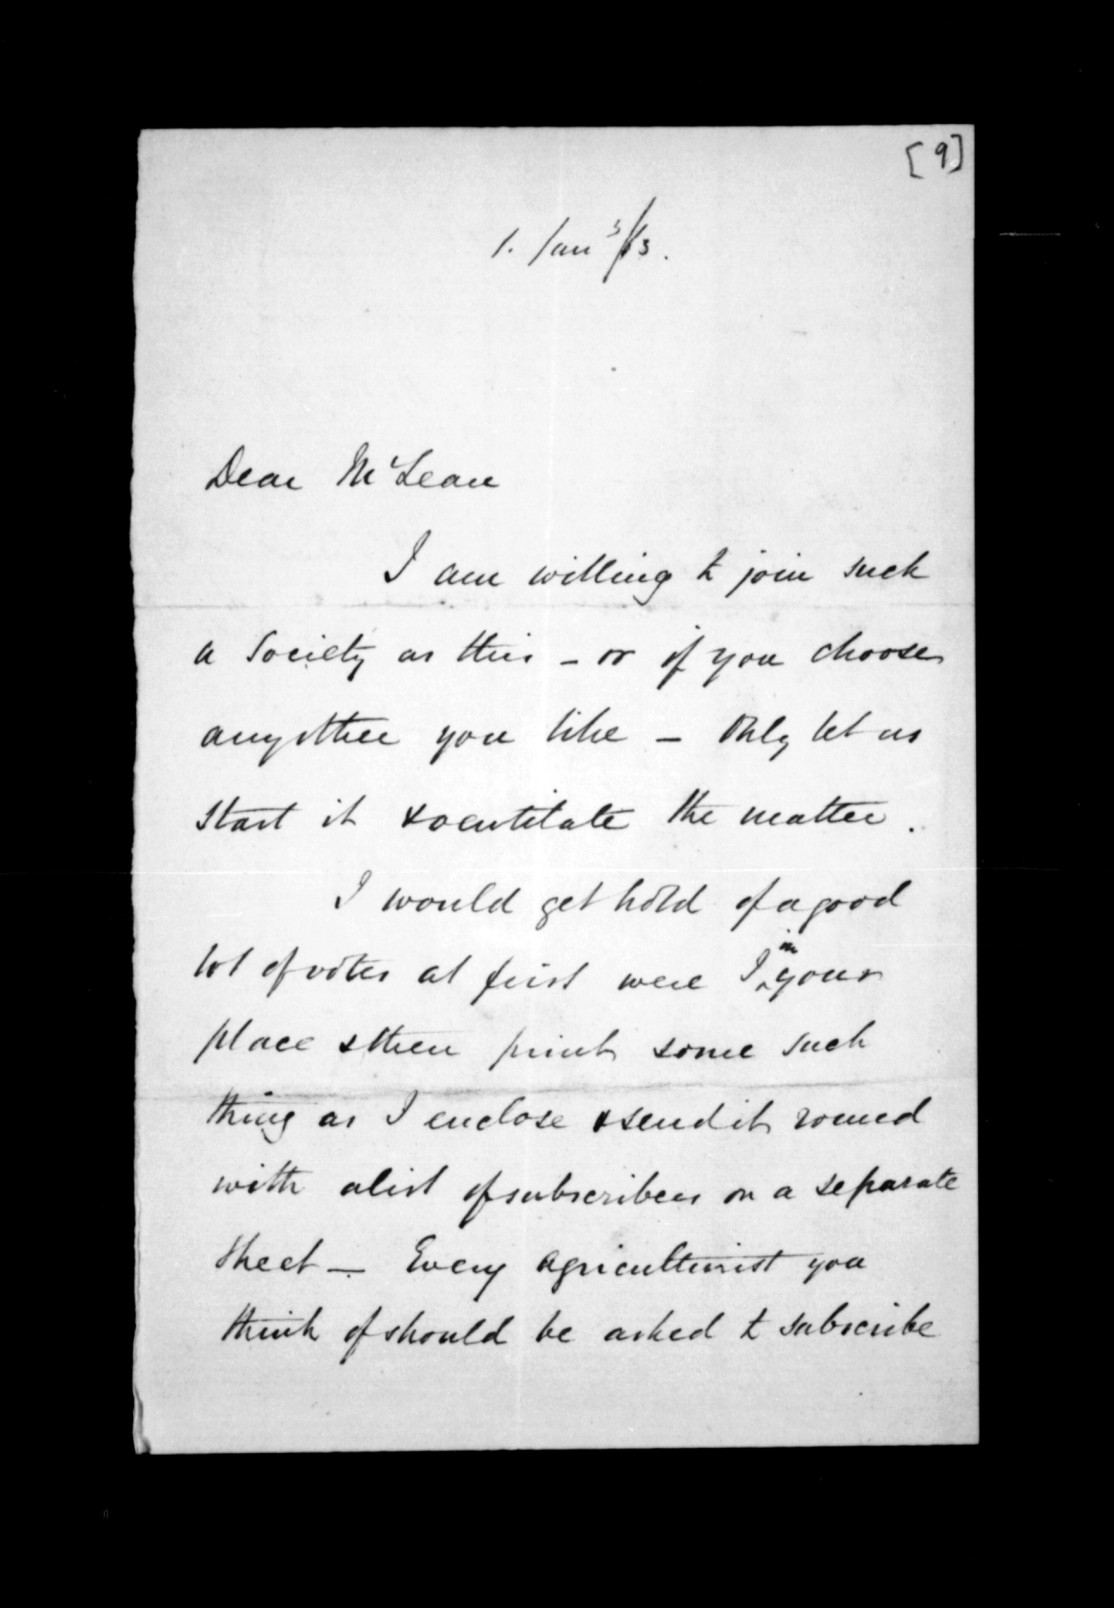 [9]
1. Jan 3/63.
Dear McLean
I am willing to join such
a Society as this - or if you choose
any other you like - Only let us
start it & ventilate the matter.
I would get hold of a good
lot of votes at first were I in your
place & then print some such
thing as I enclose & send it round
with a list of subscribers on a separate
sheet - Every agriculturist you
think of should be asked to subscribe